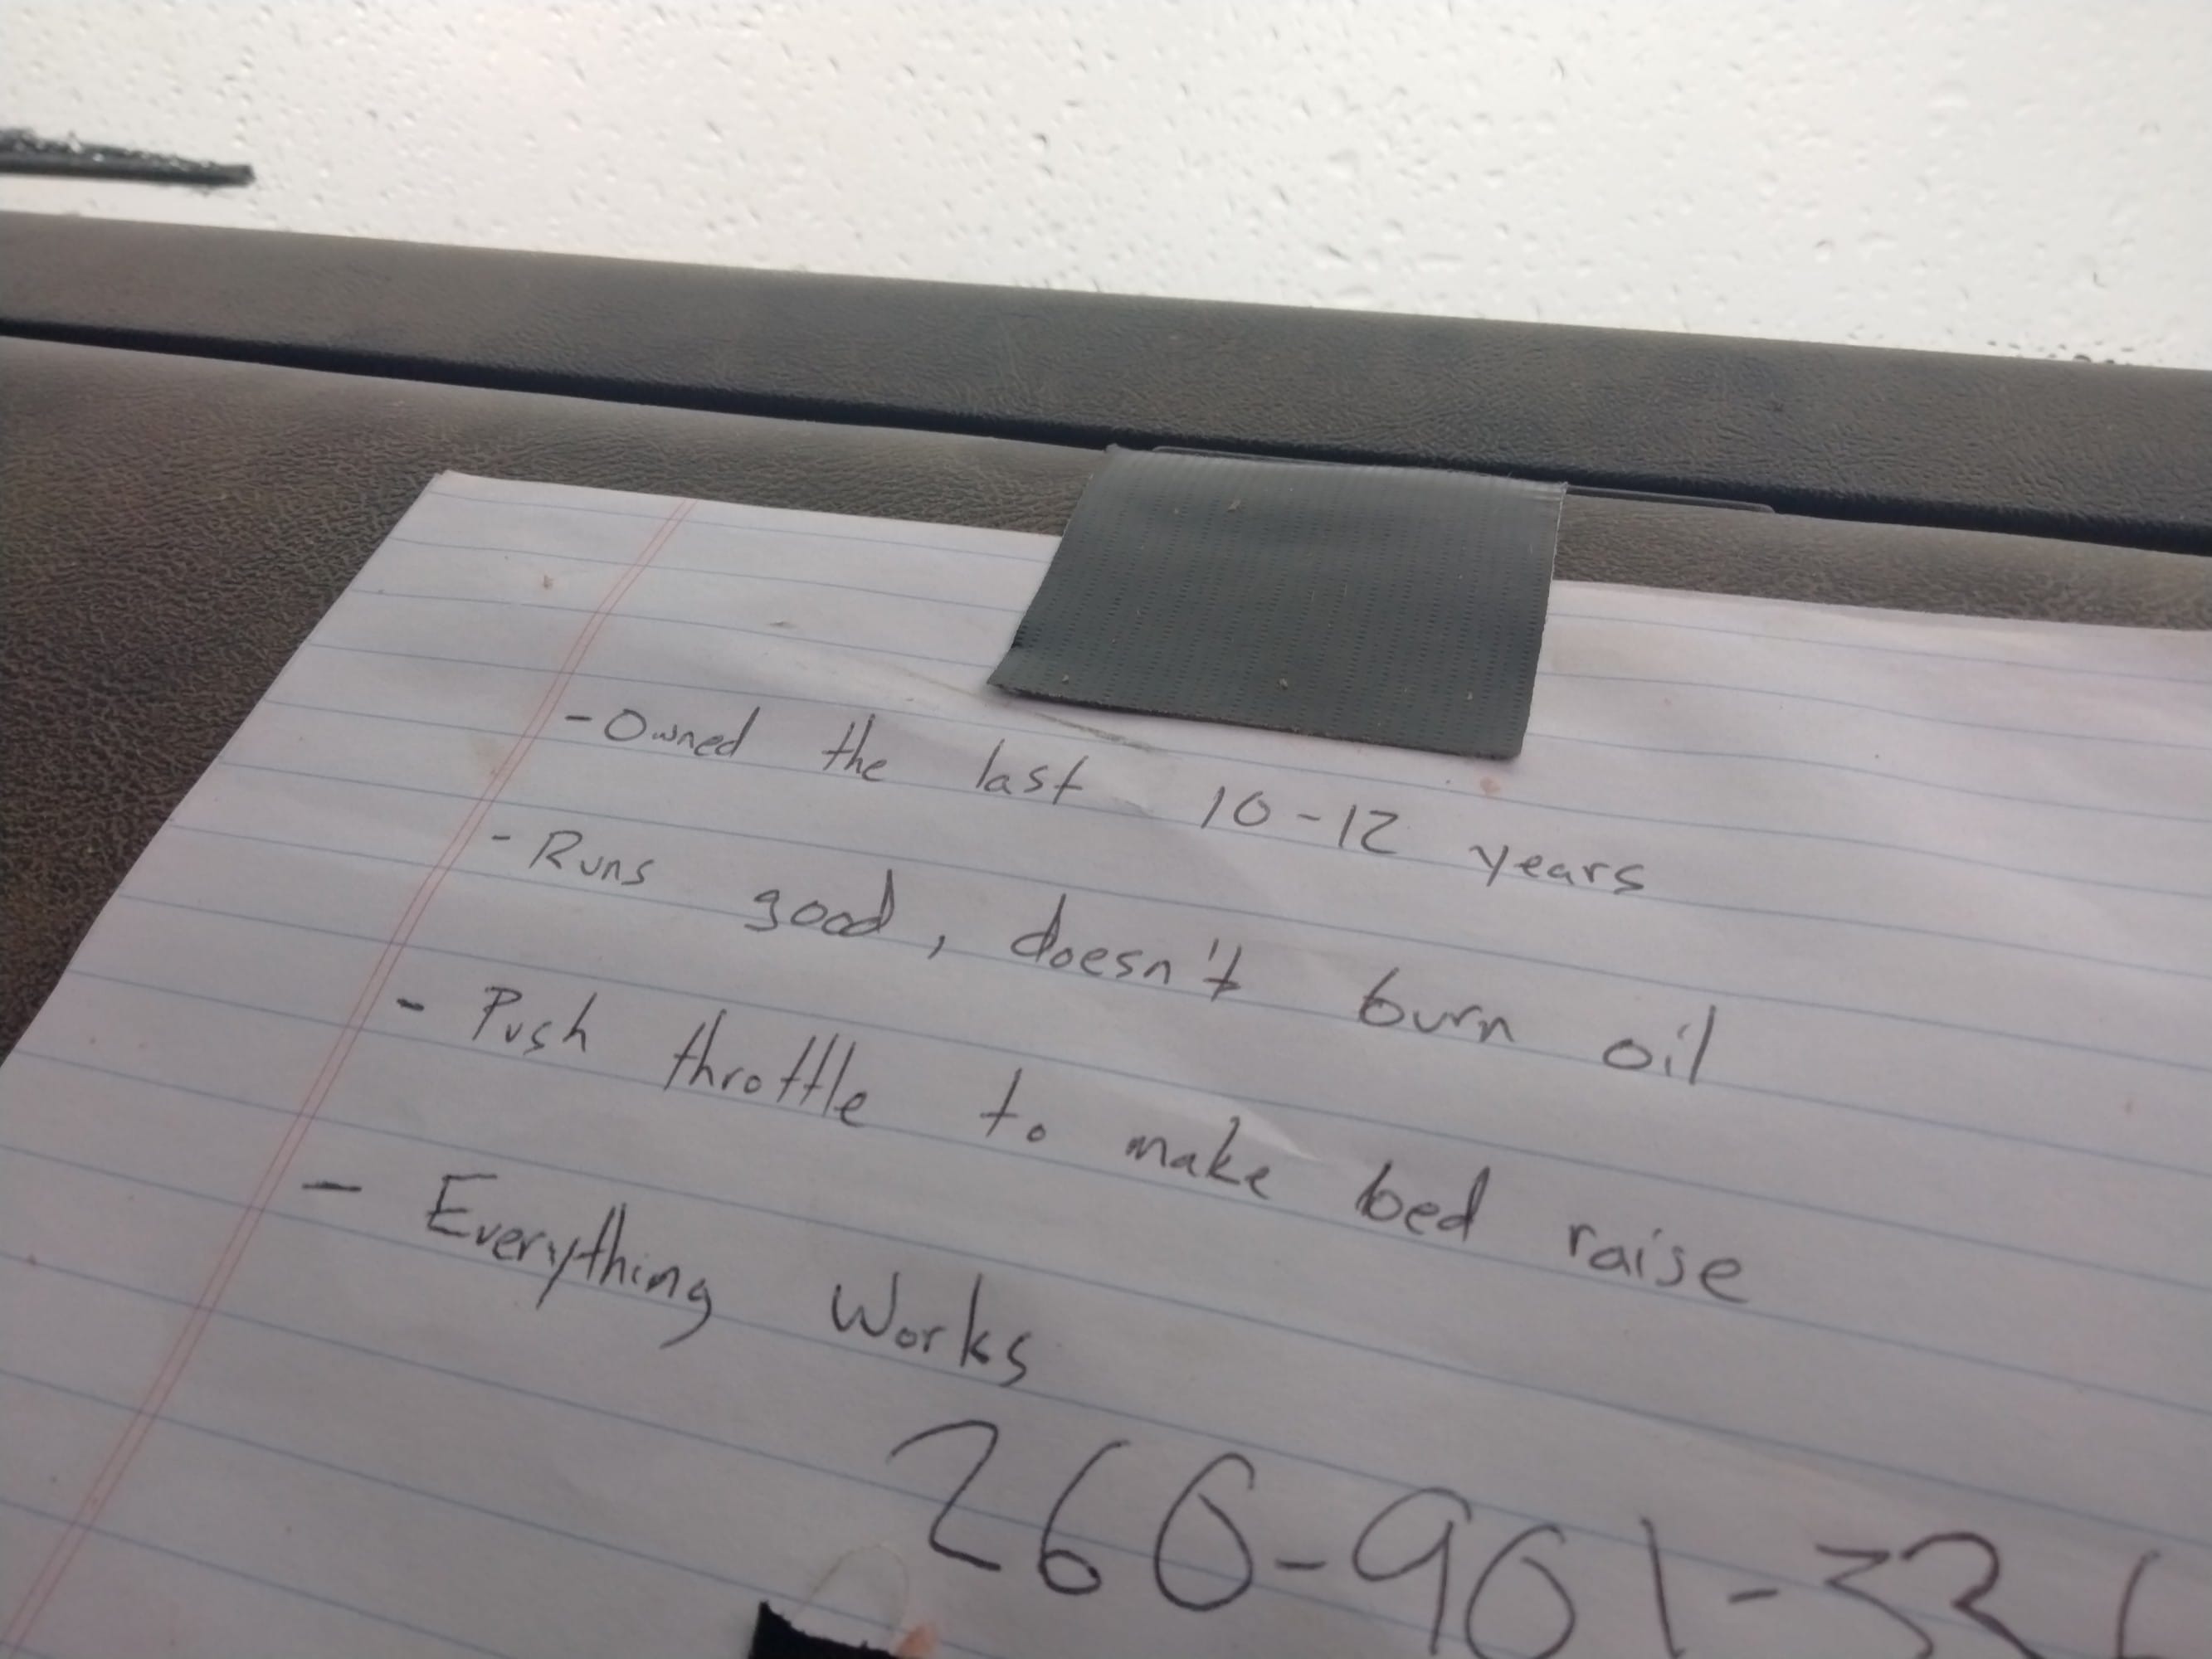 - Owned the last 10-12 years
- Runs good, doesn't burn oil
- Push throttle to make bed raise
- Everything Works
260-901-33